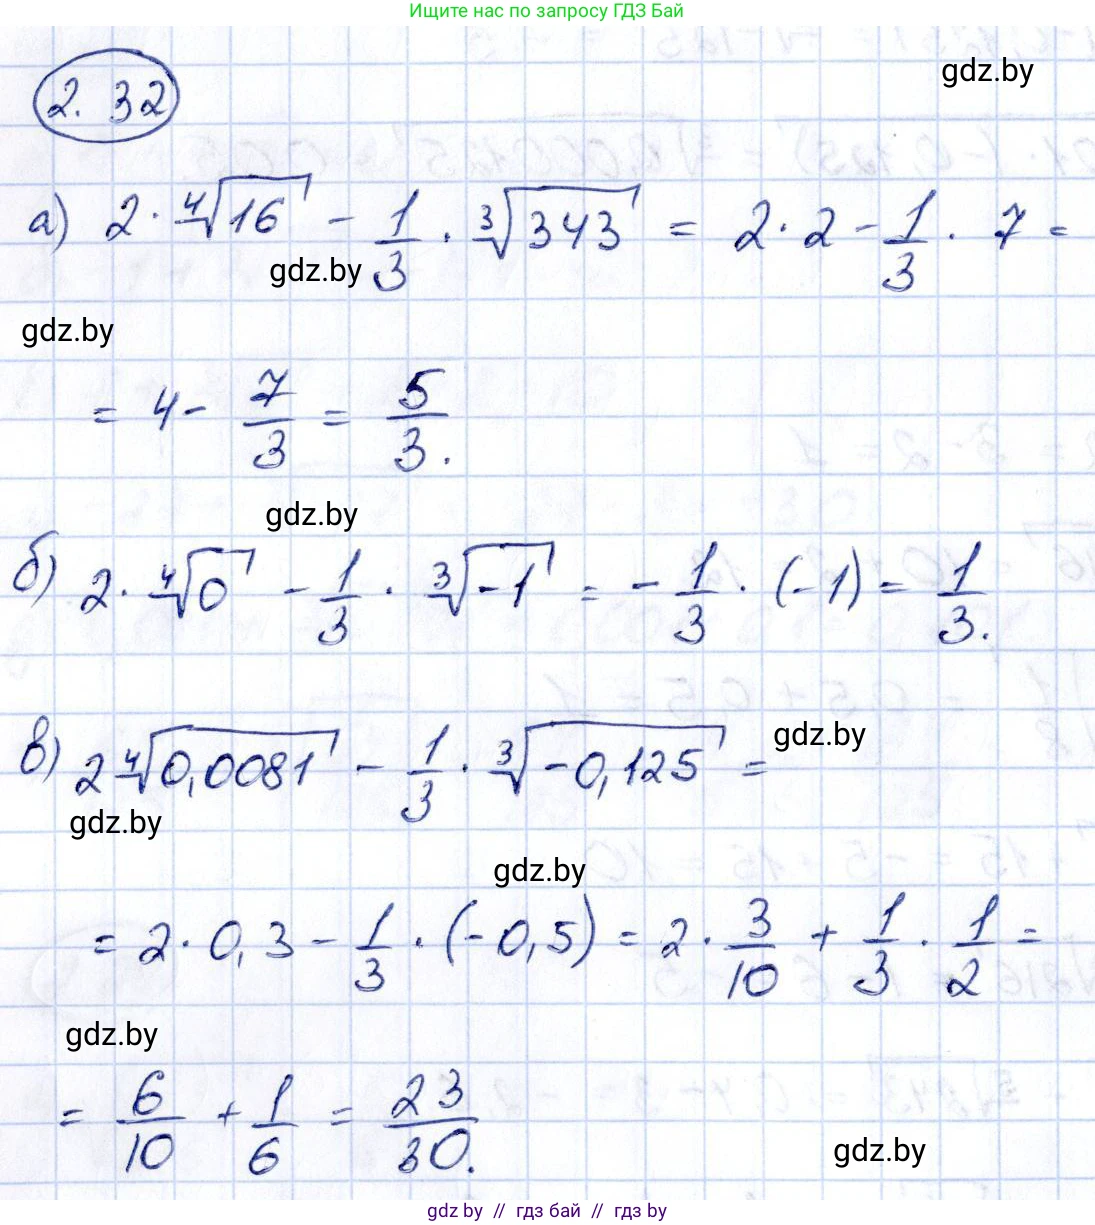 Ищите нас по запросу ГДЗ Бай
gdz.by
2.32
а) 2 · ⁴√16 − 1/3 · ³√343 = 2 · 2 − 1/3 · 7 =
gdz.by
gdz.by
= 4 − 7/3 = 5/3.
gdz.by
б) 2 · ⁴√0 − 1/3 · ³√−1 = − 1/3 · (−1) = 1/3.
в) 2 ⁴√0,0081 − 1/3 · ³√−0,125 =
gdz.by
gdz.by
gdz.by
= 2 · 0,3 − 1/3 · (−0,5) = 2 · 3/10 + 1/3 · 1/2 =
gdz.by
= 6/10 + 1/6 = 23/30.
gdz.by
gdz by // гдз бай // гдз by